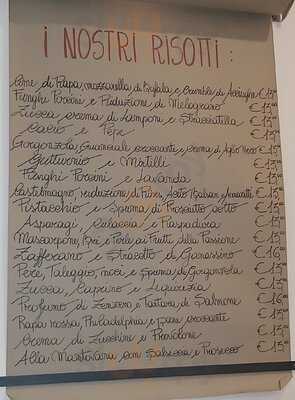 I NOSTRI RISOTTI :
Cime di Rapa, mozzarella di Bufala, e Crumble di Acciughe €15,00
Funghi Porcini e Riduzione di Melograno €15,00
Zucca, crema di Lampone e Stracciatella €15,00
Cacio e Pepe €13,00
Gorgonzola, Guanciale croccante, e crema di Aglio nero €15,00
e Mirtilli
Funghi Porcini e Lavanda €15,00
Castelmagno, reduzione di Aceto Balsam. e
Pistacchio e Spuma di Prosciutto cotto €15,00
Asparagi, e €15,00
Mascarpone, Brie e Perle ai Frutti della Passione €15,00
Zafferano e Stracotto di €16,00
Pere, Taleggio, noci e spuma di Gorgonzola €15,00
Zucca, Caprino e Liquirizia €15,00
Profumo di Zenzero e Tartara di Salmone €16,00
Rapa rossa, Philadelphia, e pane croccante €15,00
Crema di Zucchine e Provolone €15,00
Alla Mantovana con Salsiccia e Prosecco €15,00